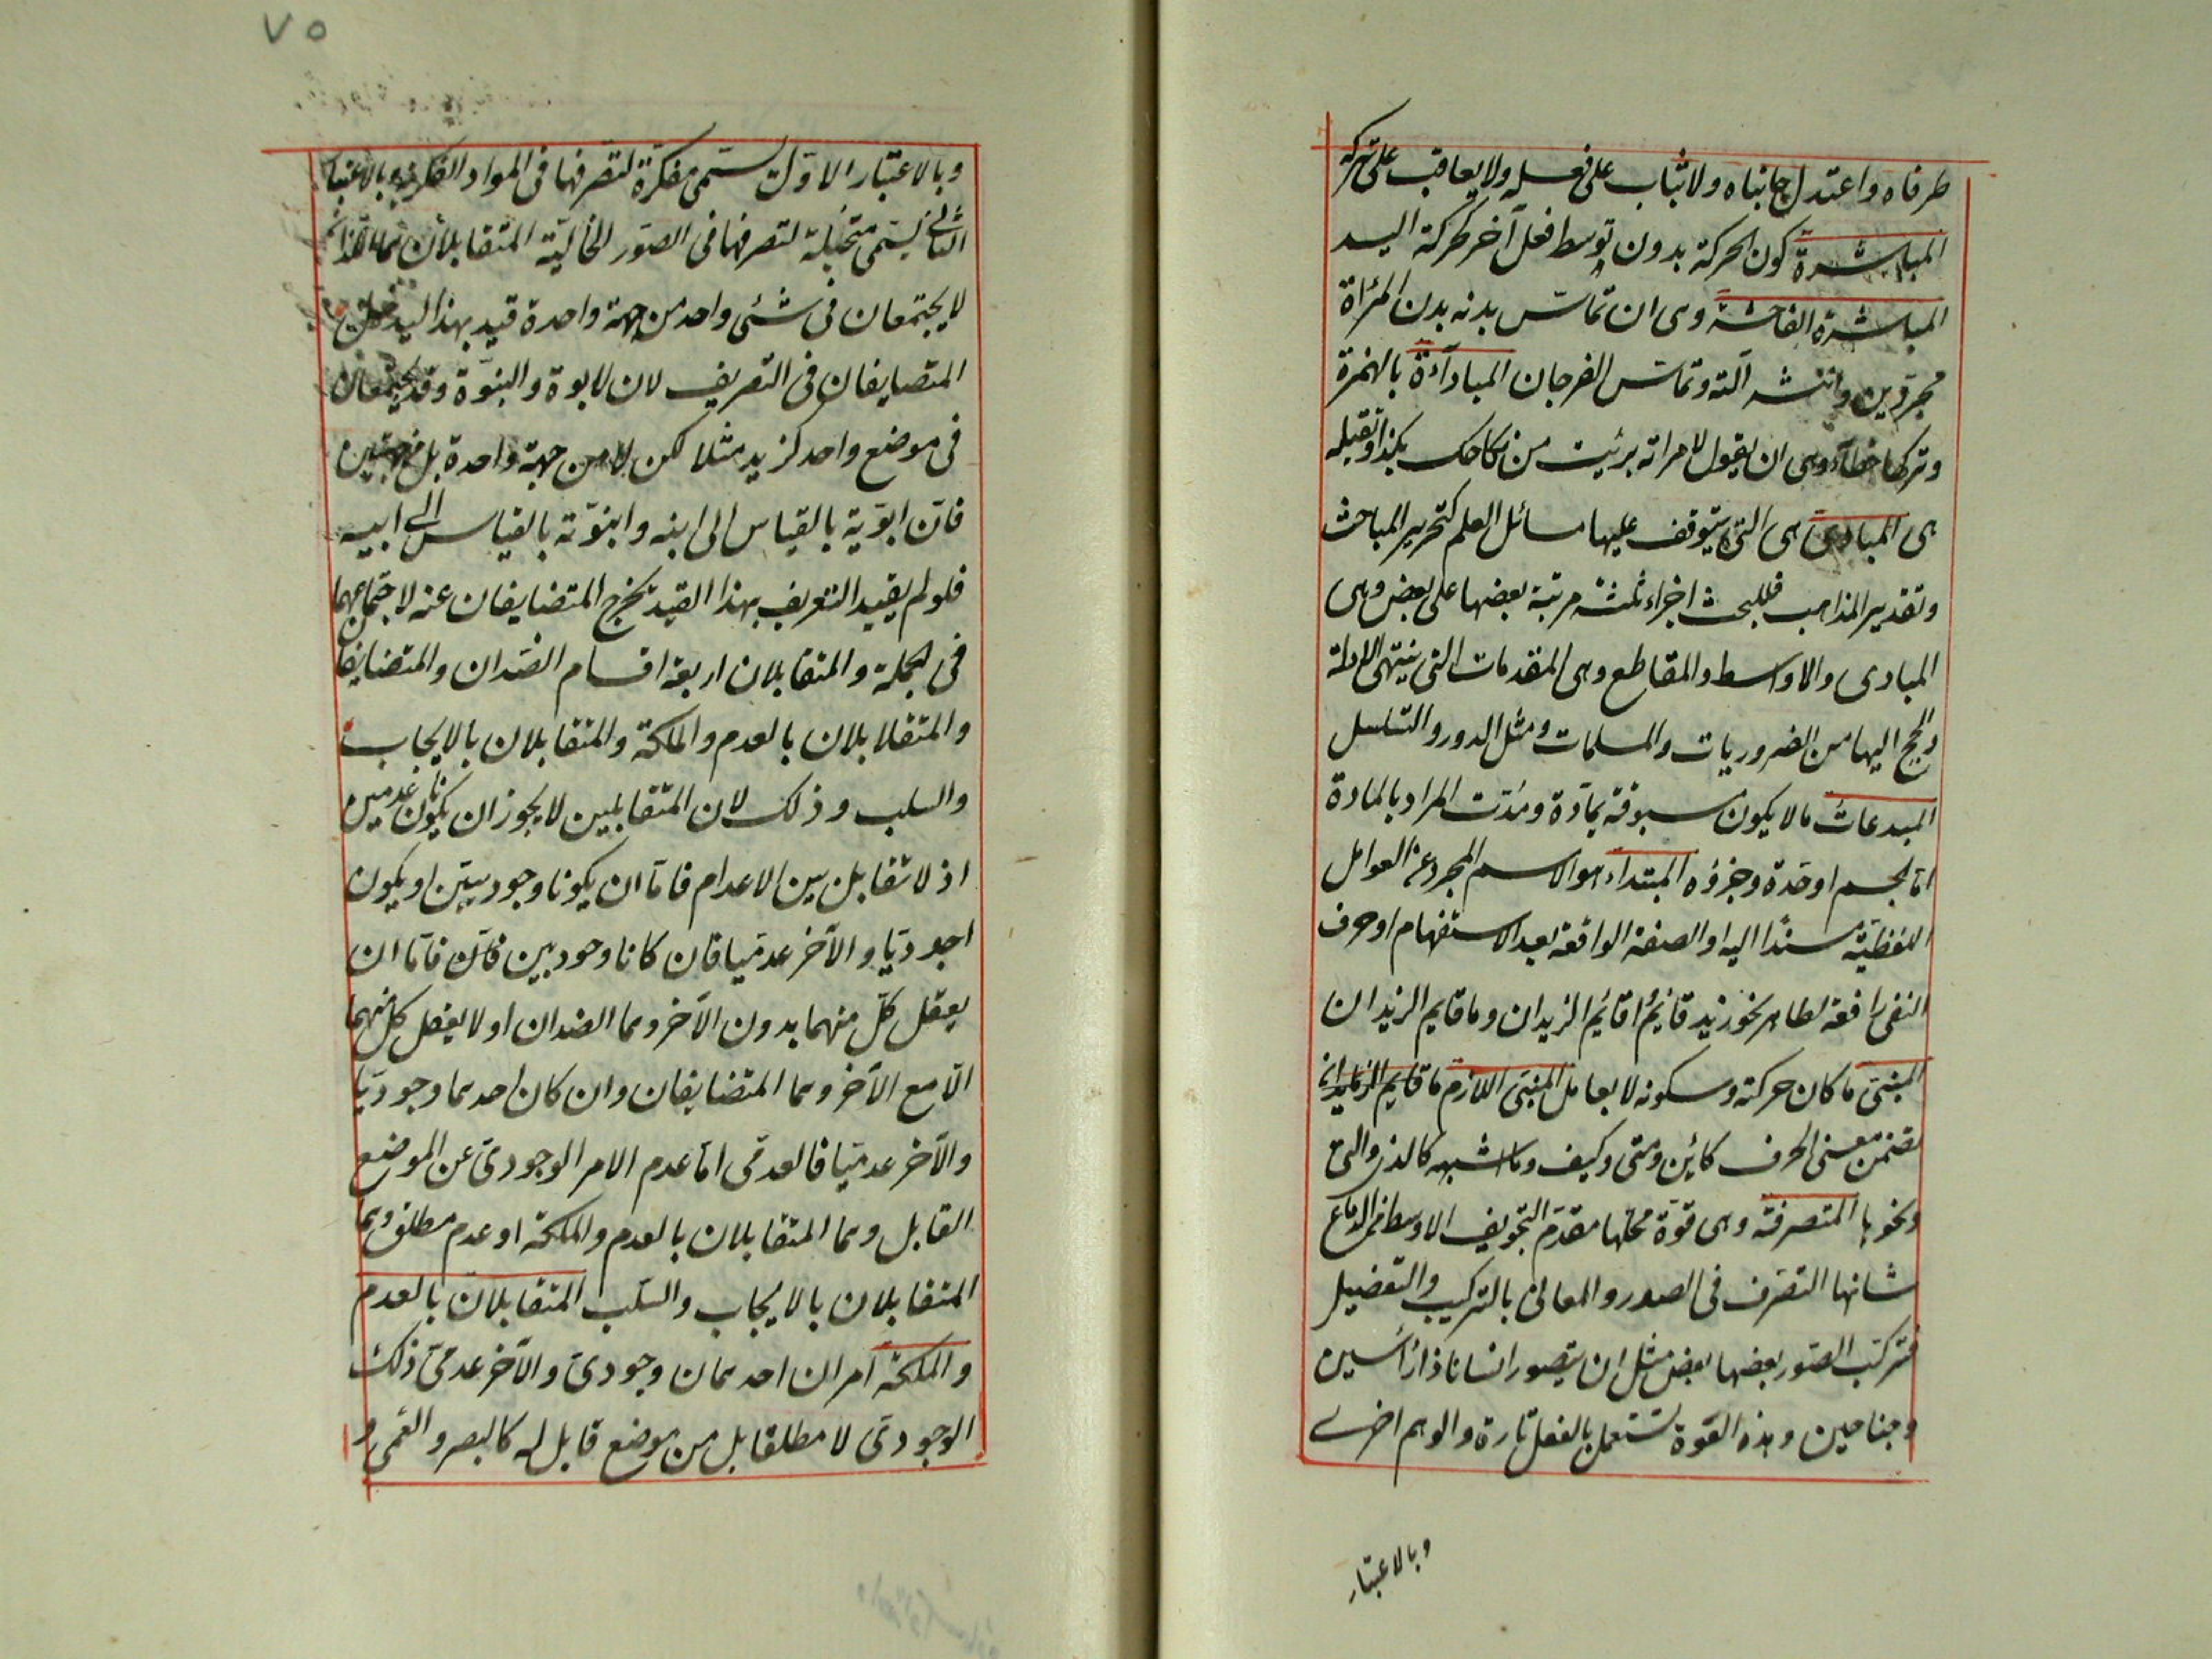 طرفاه واعتدل جانباه ولا يثاب على فعله ولا يعاقب على تركه
المباشرة كون الحركة بدون توسط فعل آخر كحركة اليد
المباشرة الفاحشة وهى ان تماس بدنه بدن المرأة
مجردين وانتشر آلته وتماس الفرجان المبادآءة بالهمزة
وتركها خطأ وهى ان يقول لامراته برئيت من نكاحك بكذا وتقبله
هى المبادى هى التى يتوقف عليها مسائل العلم كتحرير المباحث
وتقدير المذاهب فللبحث اجزاء ثلثة مرتبة بعضها على بعض وهى
المبادى والاواسط والمقاطع وهى المقدمات التى ينتهى الادلة
والحجج اليها من الضروريات والمسلمات ومثل الدور والتسلسل
المبدعات مالا يكون مسبوقة بمادة ومدت المراد بالمادة
اما الجسم اوحدة وجزؤه المبتداء هو الاسم المجرد عن العوامل
اللفظية مسندا اليه او الصفة الواقعة بعد الاستفهام اوحرف
النفى رافعة لظاهر نحو زيد قائم أقائم الزيدان وما قايم الزيدان
المبنى ما كان حركته وسكونه لا بعامل المبنى اللازم ما قايم الزيدان
تضمن معنى الحرف كائين ومتى وكيف وما اشبهه كالذى والتى
ونحوها المتصرفة وهى قوة محلها مقدم التجويف الاوسط من الدماغ
شانها التصرف فى الصدور والمعانى بالتركيب والتفضيل
فتركب الصور بعضها بعض مثل ان يتصور انسانا ذا رأسين
وجناحين وهذه القوة تستعمل بالفعل تارة والوهم اخرى
وبالاعتبار
٧٥
وبالاعتبار الاول تسمى مفكرة لتصرفها فى المواد الفكرية وبالاعتبا
الثانى يسمى متخيلة لتصرفها فى الصور الخالية المتقابلان هما اللذان
لا يجتمعان فى شئى واحد من جهة واحدة قيد بهذا ليدخل
المتصايفان فى التعريف لان لابوة والبنوة وقد يجتمعان
فى موضع واحد كزيد مثلا لكن لا من جهة واحدة بل من جهتين
فان ابوية بالقياس الى ابنه وابنوته بالقياس الى ابيه
فلو لم يقيد التعريف بهذا القيد لخرج المتضايفان عنه لاجتماعهما
فى الجملة والمتقابلان اربعة اقسام الضدان والمتضايفا
والمتقلابلان بالعدم والملكة والمتقابلان بالايجاب
والسلب وذلك لان المتقابلين لا يجوز ان يكونا عدميين
اذ لا تقابل بين الاعدام فاما ان يكونا وجوديين او يكون
اجدوديا والآخر عدميا فان كانا وجوديين فان فاما ان
يعقل كل منهما بدون الآخر وهما الضدان او لا يعقل كل منهما
الا مع الآخر وهما المتضايفان وان كان احدهما وجوديا
والآخر عدميا فالعدمى اما عدم الامر الوجودى عن الموضع
القابل وهما المتقابلان بالعدم والملكة او عدم مطلق وهما
المتقابلان بالايجاب والسلب المتقابلان بالعدم
والملكة امران احدهمان وجودى والآخر عدمى ذلك
الوجودى لا مطلقا بل من موضع قابل له كالبصر والعمى و